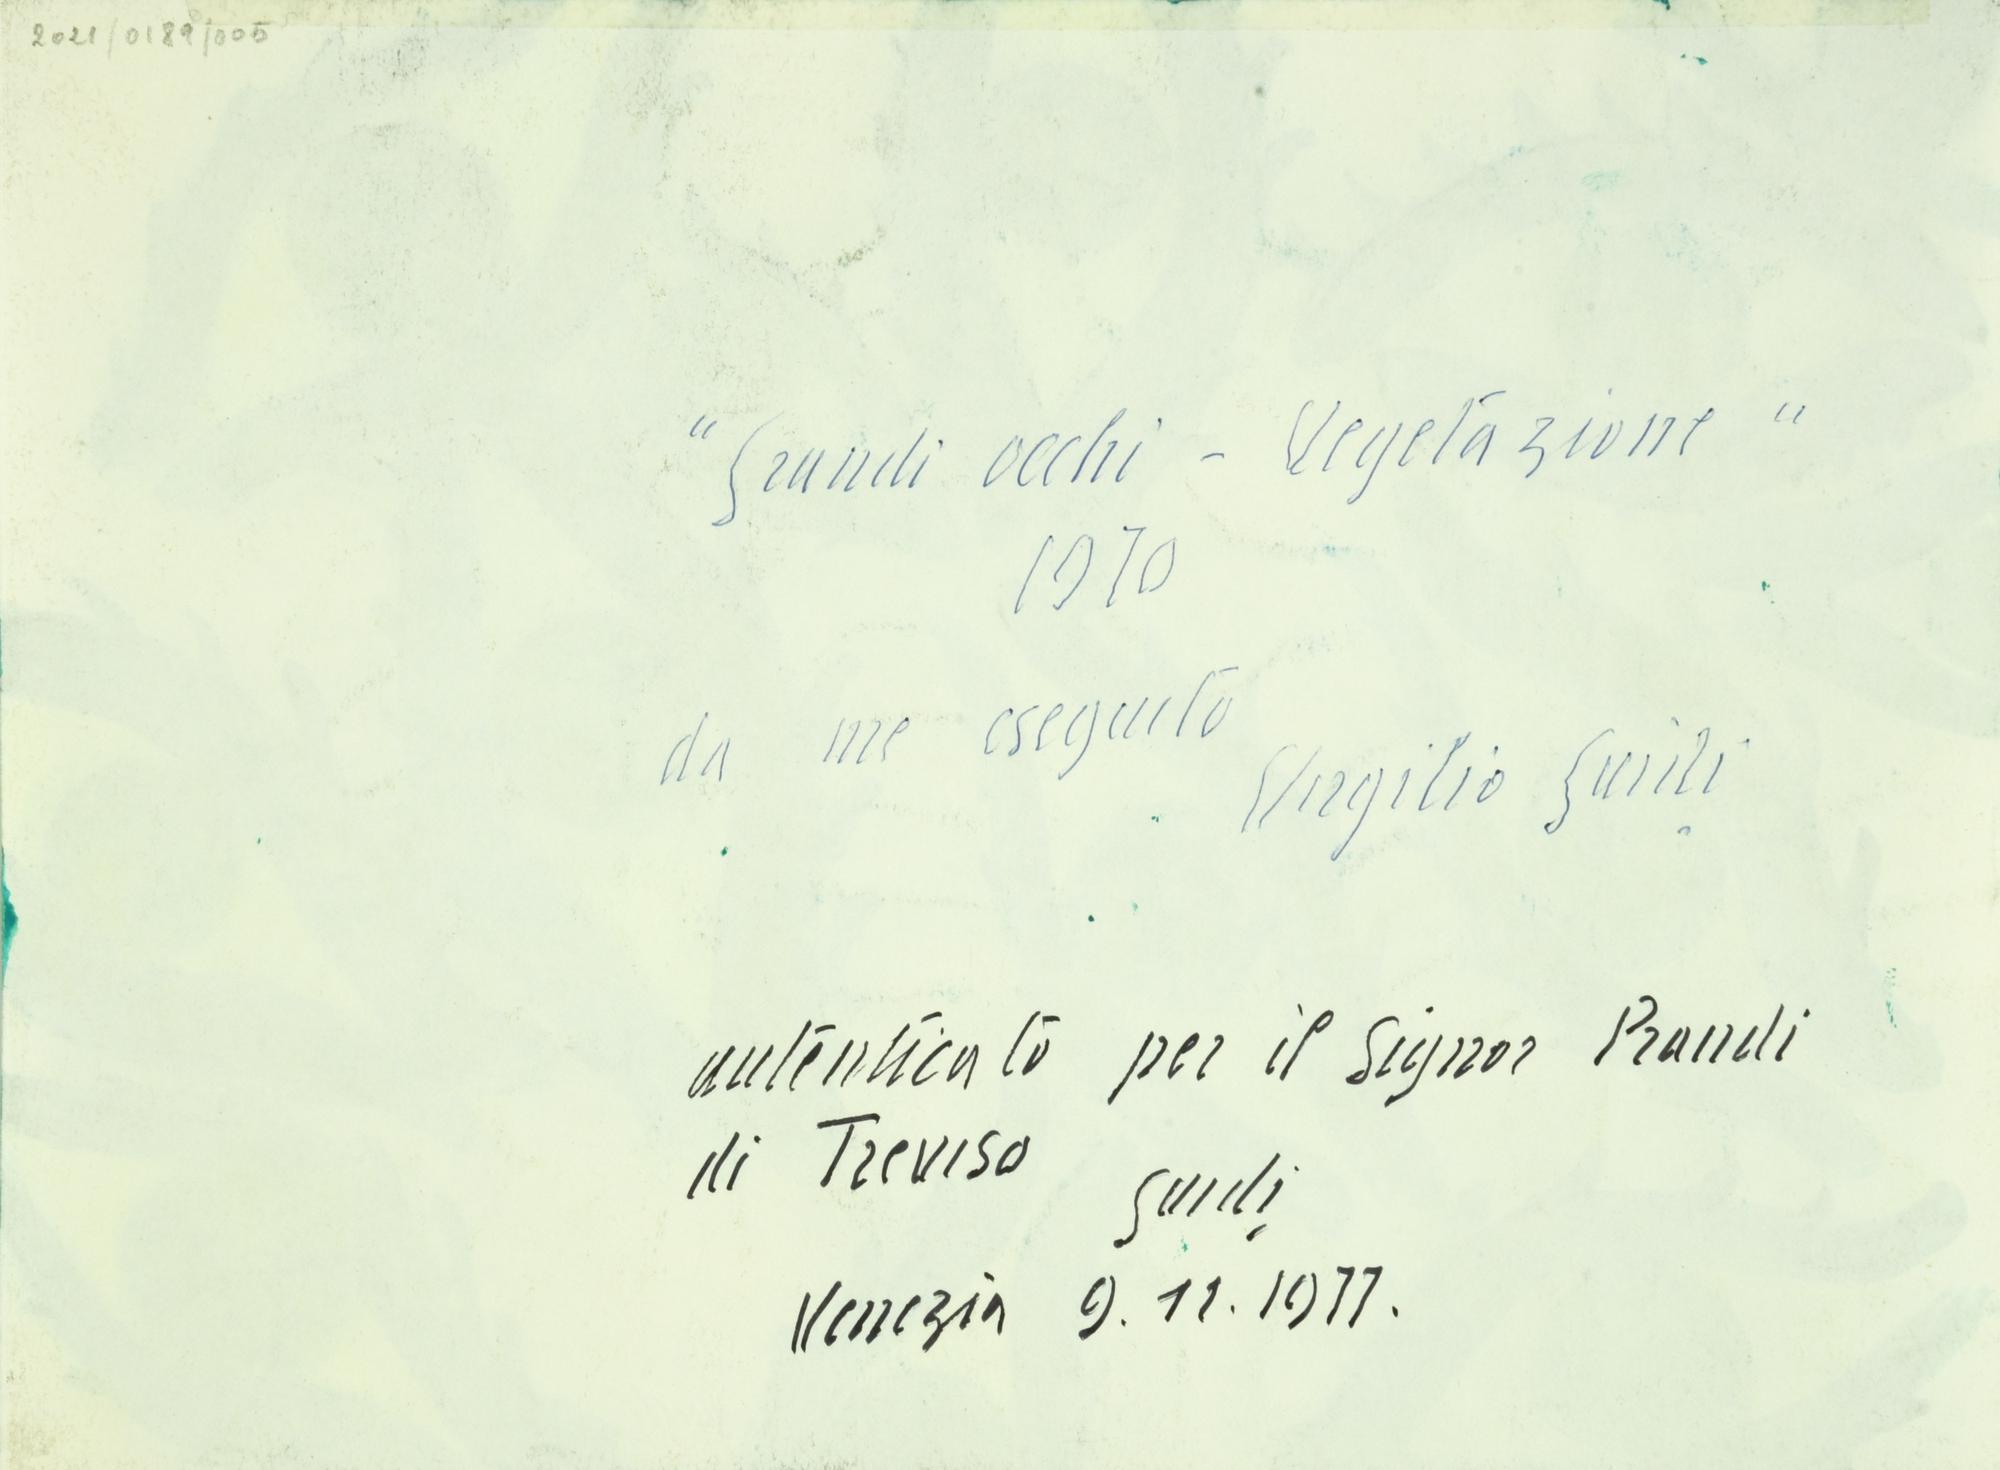 2021/0189/005
"Grandi occhi - Vegetazione"
1970
da me eseguito
Virgilio Guidi
autenticato per il Signor Prandi
di Treviso
Guidi
Venezia 9.11.1977.